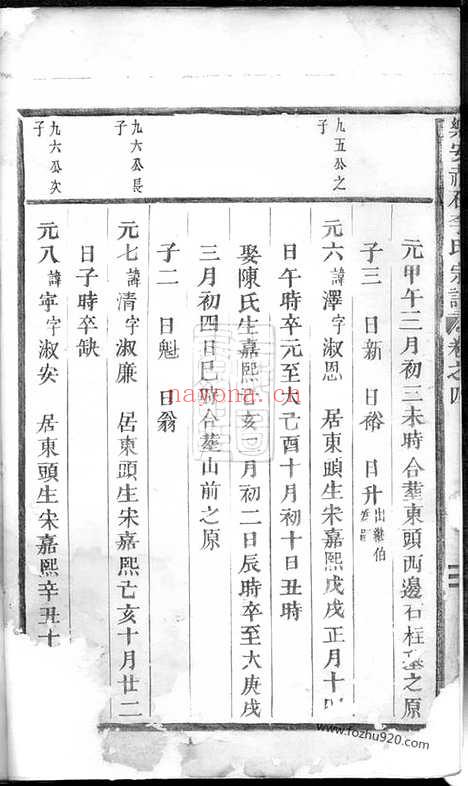 樂安 李氏宗譜 卷之四
元甲午二月初三未時合葬東頭西邊石柱 之原
子三 日新 日裕 日升 出繼伯
九五公之子
元六 諱澤字淑恩 居東頭生宋嘉熙戊戌正月十四
日午時卒元至大己酉十月初十日丑時
娶陳氏生嘉熙 亥 月初二日辰時卒至大庚戌
三月初四日巳時合葬山前之原
子二 日魁 日翁
九六公長子
元七 諱清字淑廉 居東頭生宋嘉熙亡亥十月廿二
日子時卒缺
九六公次子
元八 諱寧字淑安 居東頭生宋嘉熙辛丑十
nayona.cn
www.fozhu920.com